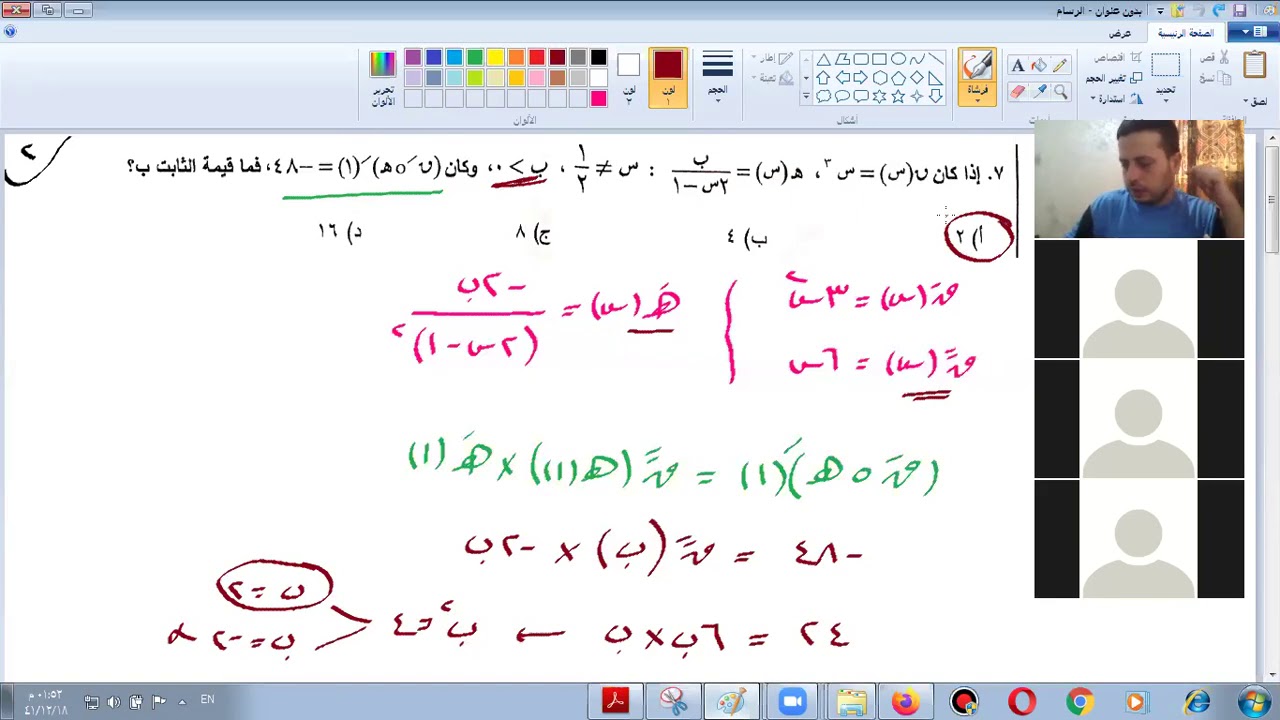 بدون عنوان - الرسام
الصفحة الرئيسية عرض
لصق قص نسخ
تحديد اقتصاص تغيير الحجم استدارة
A
فرشاة
إطار تعبئة
الحجم
لون ١ لون ٢
تحرير الألوان
الحافظة أدوات أشكال الألوان
٢
٧. إذا كان ن(س) = س³، هـ(س) = ب / (٢س − ١) : س ≠ ١/٢ ، ب > ٠، وكان (ن َ ○ هـ) َ(١) = −٤٨، فما قيمة الثابت ب؟
أ) ٢ ب) ٤ ج) ٨ د) ١٦
نَ(س) = ٣س² { هـَ(س) = −٢ب / (٢س − ١)²
نً(س) = ٦س
(نَ ○ هـ)َ(١) = نً(هـ(١)) × هـَ(١)
−٤٨ = نً(ب) × −٢ب
٢٤ = ٦ب × ب ← ب² = ٤
ب = ٢
ب = −٢ ×
EN
٠١:٥٢ م
٤١/١٢/١٨